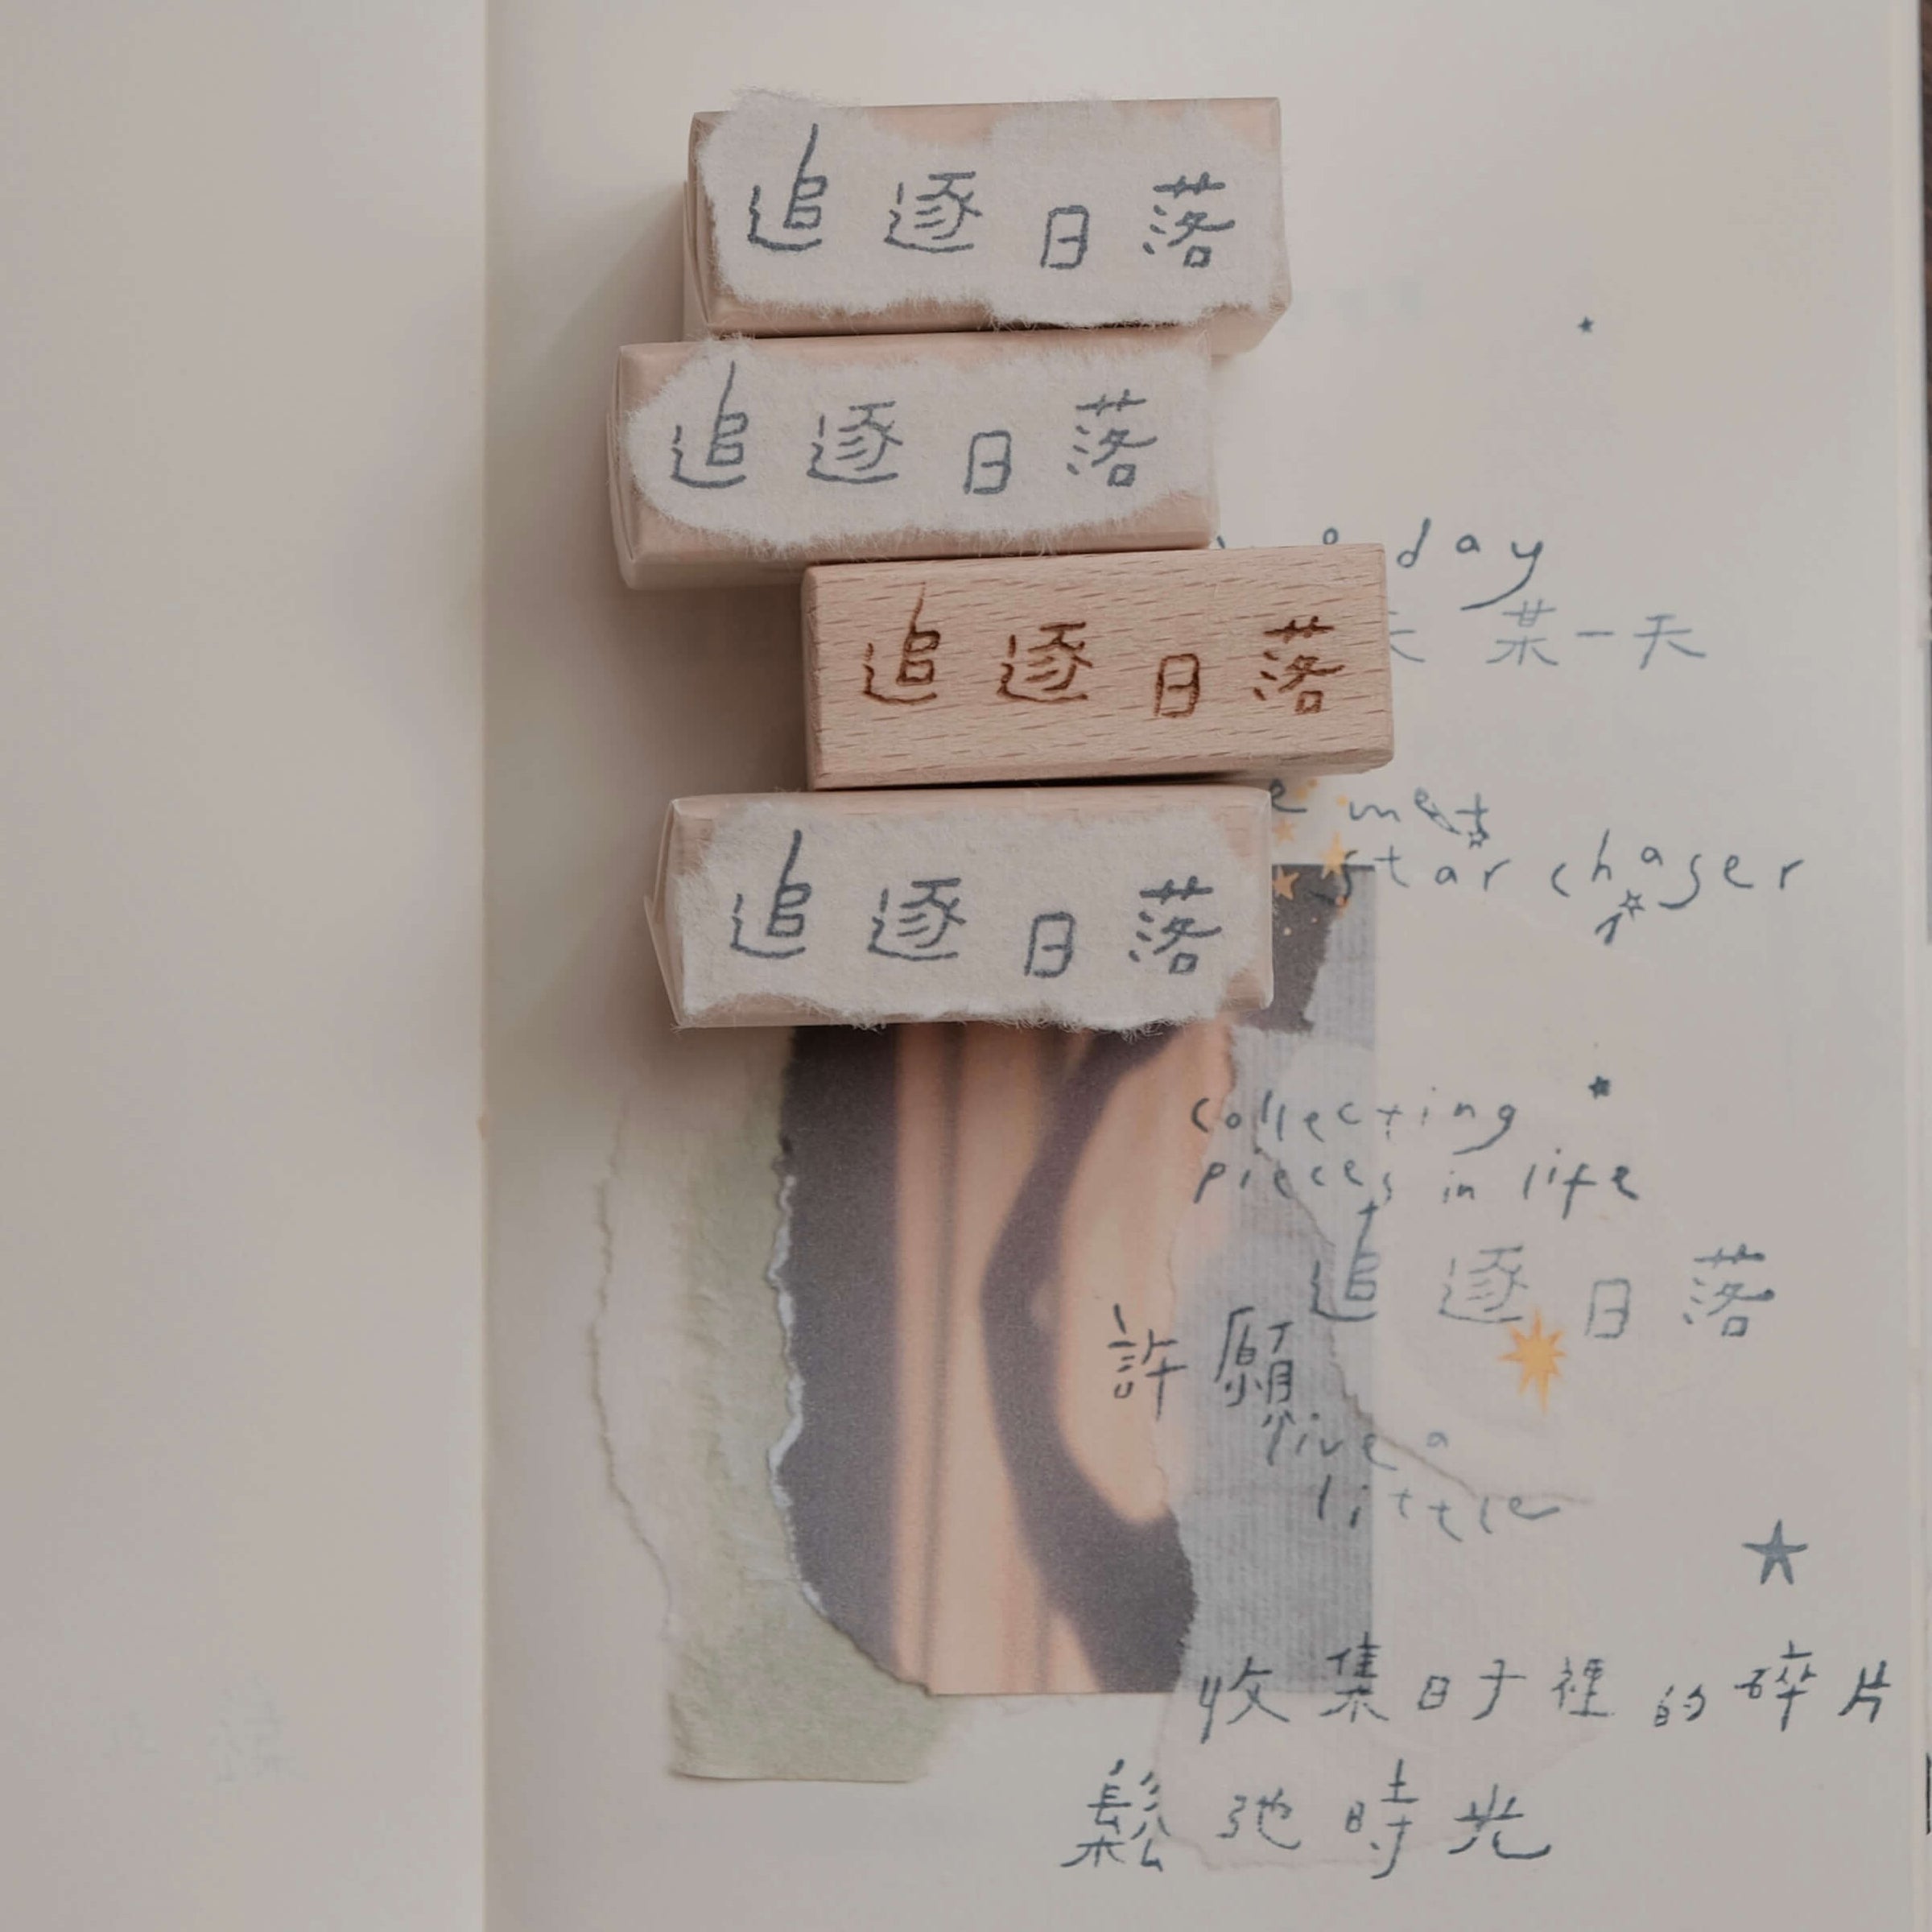 追逐日落
追逐日落
day
某一天
追逐日落
met
star chaser
追逐日落
collecting
pieces in life
追逐日落
許願
live a
little
收集日子裡的碎片
鬆弛時光